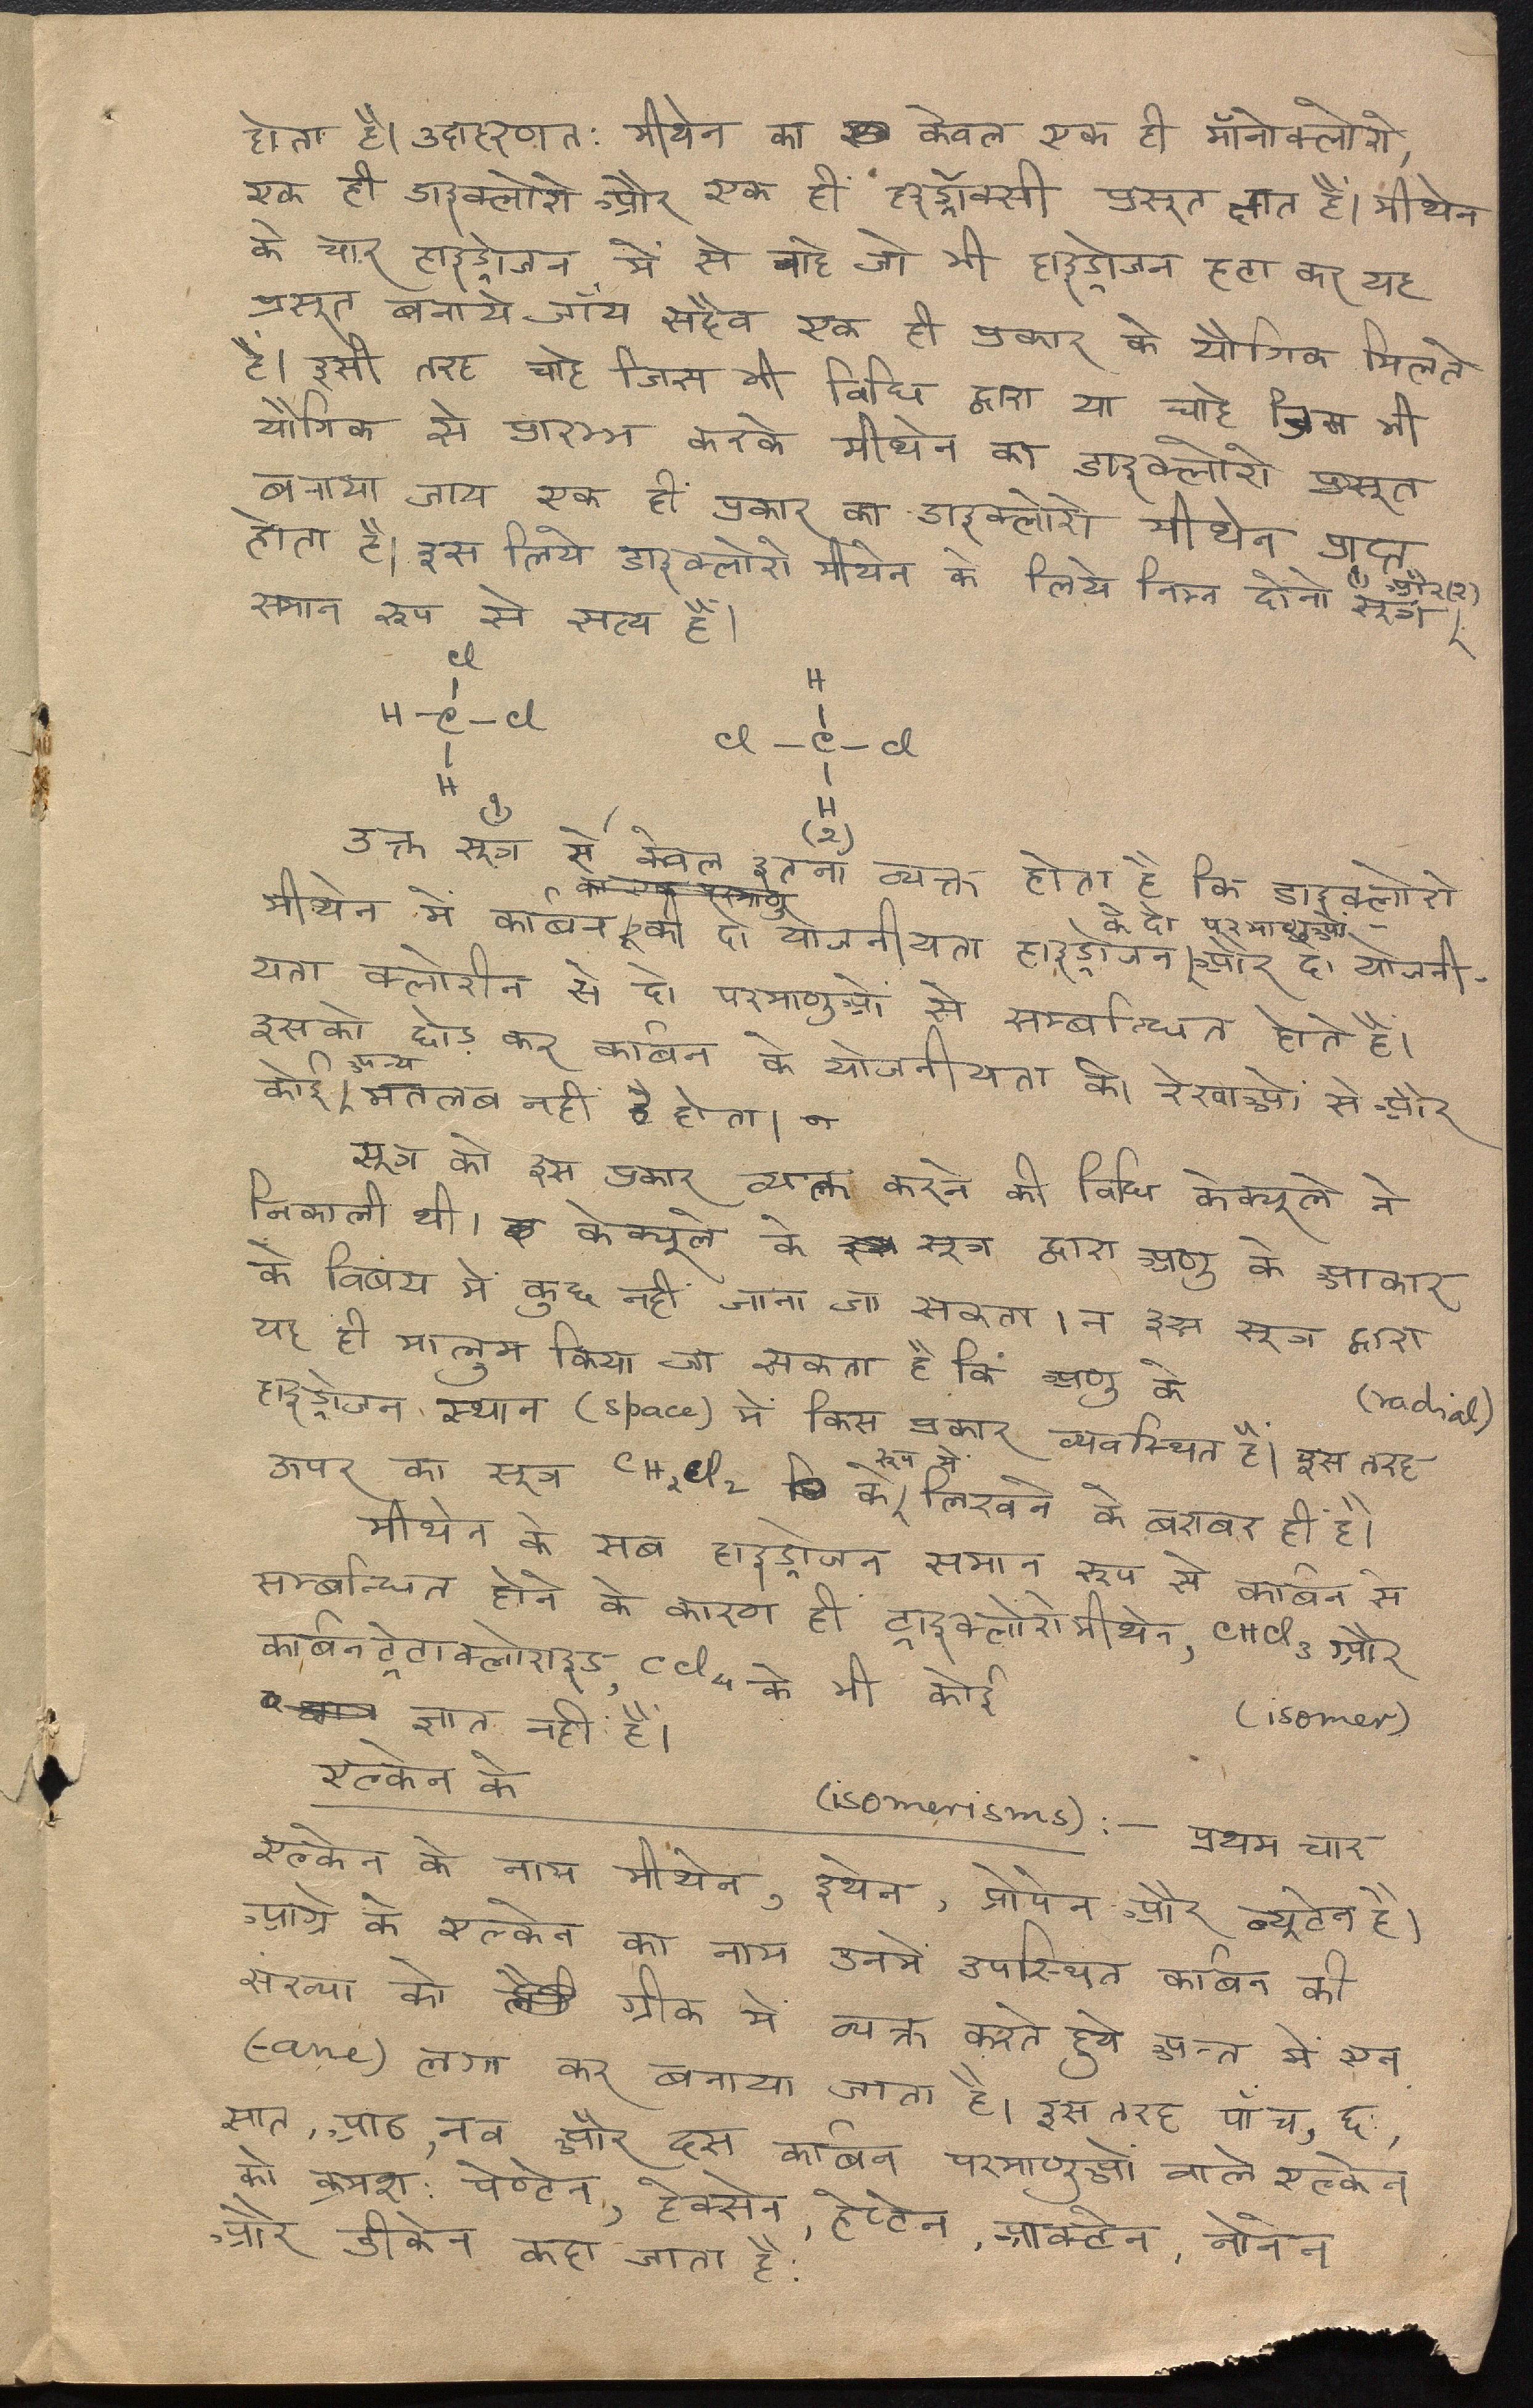 होता है। उदाहरणत: मीथेन का केवल एक ही मॉनोक्लोरो,
एक ही डाइक्लोरो और एक ही हड्रॉक्सी प्रसूत ज्ञात हैं। मीथेन
के चार हाइड्रोजन में से चाहे जो भी हाइड्रोजन हटा कर यह
प्रसूत बनाये जाँय सदैव एक ही प्रकार के यौगिक मिलते
हैं। इसी तरह चाहे जिस भी विधि द्वारा या चाहे जिस भी
यौगिक से प्रारम्भ करके मीथेन का डाइक्लोरो प्रसूत
बनाया जाय एक ही प्रकार का डाइक्लोरो मीथेन प्राप्त
होता है। इस लिये डाइक्लोरो मीथेन के लिये निम्न दोनो सूत्र (१) और (२)
समान रूप से सत्य हैं।
Cl
H
H – C – Cl
Cl – C – Cl
H
H
(१)
(२)
उक्त सूत्र से केवल इतना व्यक्त होता है कि डाइक्लोरो
का एक परमाणु
मीथेन में कार्बन की दो योजनीयता हाइड्रोजन के दो परमाणुओं और दो योजनी-
यता क्लोरीन से दो परमाणुओं से सम्बन्धित होते हैं।
इसको छोड़ कर कार्बन के योजनीयता की रेखाओं से और
कोई अन्य मतलब नहीं होता।
सूत्र को इस प्रकार व्यक्त करने की विधि केक्यूले ने
निकाली थी। केक्यूले के सूत्र द्वारा अणु के आकार
के विषय में कुछ नहीं जाना जा सकता। न इस सूत्र द्वारा
यह ही मालुम किया जा सकता है कि अणु के (radial)
हाइड्रोजन स्थान (space) में किस प्रकार व्यवस्थित हैं। इस तरह
ऊपर का सूत्र CH₂Cl₂ के रूप में लिखने के बराबर ही है।
मीथेन के सब हाइड्रोजन समान रूप से कार्बन से
सम्बन्धित होने के कारण ही ट्राइक्लोरोमीथेन, CHCl₃ और
कार्बनटेट्राक्लोराइड, CCl₄ के भी कोई (isomer)
ज्ञात नहीं हैं।
एल्केन के (isomerisms) :– प्रथम चार
एल्केन के नाम मीथेन, इथेन, प्रोपेन और ब्यूटेन है।
आगे के एल्केन का नाम उनमें उपस्थित कार्बन की
संख्या को ग्रीक में व्यक्त करते हुये अन्त में एन
(-ane) लगा कर बनाया जाता है। इस तरह पाँच, छ:,
सात, आठ, नव और दस कार्बन परमाणुओं वाले एल्केन
को क्रमश: पेण्टेन, हेक्सेन, हेप्टेन, आक्टेन, नोनेन
और डीकेन कहा जाता है.